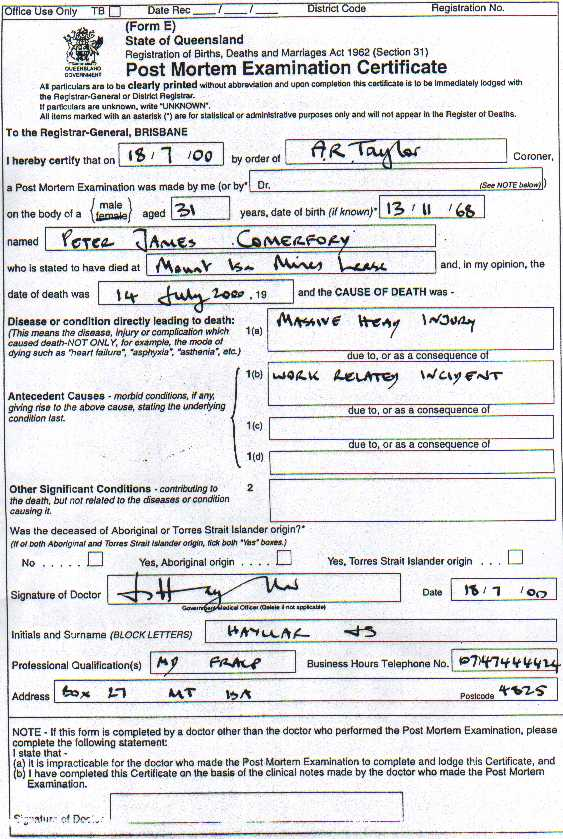 Office Use Only TB Date Rec ___ / ___ / ___ District Code Registration No.
(Form E)
State of Queensland
Registration of Births, Deaths and Marriages Act 1962 (Section 31)
QUEENSLAND GOVERNMENT
Post Mortem Examination Certificate
All particulars are to be clearly printed without abbreviation and upon completion this certificate is to be immediately lodged with
the Registrar-General or District Registrar.
If particulars are unknown, write "UNKNOWN".
All items marked with an asterisk (*) are for statistical or administrative purposes only and will not appear in the Register of Deaths.
To the Registrar-General, BRISBANE
I hereby certify that on 18/7/00 by order of A.R. Taylor Coroner,
a Post Mortem Examination was made by me (or by* Dr. (See NOTE below))
on the body of a (male female) aged 31 years, date of birth (if known)* 13/11/68
named PETER JAMES COMERFORD
who is stated to have died at Mount Isa Mines Lease and, in my opinion, the
date of death was 14 July 2000, 19 and the CAUSE OF DEATH was -
Disease or condition directly leading to death: 1(a) MASSIVE HEAD INJURY
(This means the disease, injury or complication which
caused death-NOT ONLY, for example, the mode of
dying such as "heart failure", "asphyxia", "asthenia", etc.)
due to, or as a consequence of
1(b) WORK RELATED INCIDENT
Antecedent Causes - morbid conditions, if any,
giving rise to the above cause, stating the underlying
condition last.
due to, or as a consequence of
1(c)
due to, or as a consequence of
1(d)
Other Significant Conditions - contributing to 2
the death, but not related to the diseases or condition
causing it.
Was the deceased of Aboriginal or Torres Strait Islander origin?*
(If of both Aboriginal and Torres Strait Islander origin, tick both "Yes" boxes.)
No . . . . . Yes, Aboriginal origin . . . . . Yes, Torres Strait Islander origin . . .
Signature of Doctor Date 18/7/00
Government Medical Officer (Delete if not applicable)
Initials and Surname (BLOCK LETTERS) HAYLLAR JS
Professional Qualification(s) MD Business Hours Telephone No. 0747444424
Address BOX 27 MT ISA Postcode 4825
NOTE - If this form is completed by a doctor other than the doctor who performed the Post Mortem Examination, please
complete the following statement:
I state that -
(a) it is impracticable for the doctor who made the Post Mortem Examination to complete and lodge this Certificate, and
(b) I have completed this Certificate on the basis of the clinical notes made by the doctor who made the Post Mortem
Examination.
Signature of Doctor